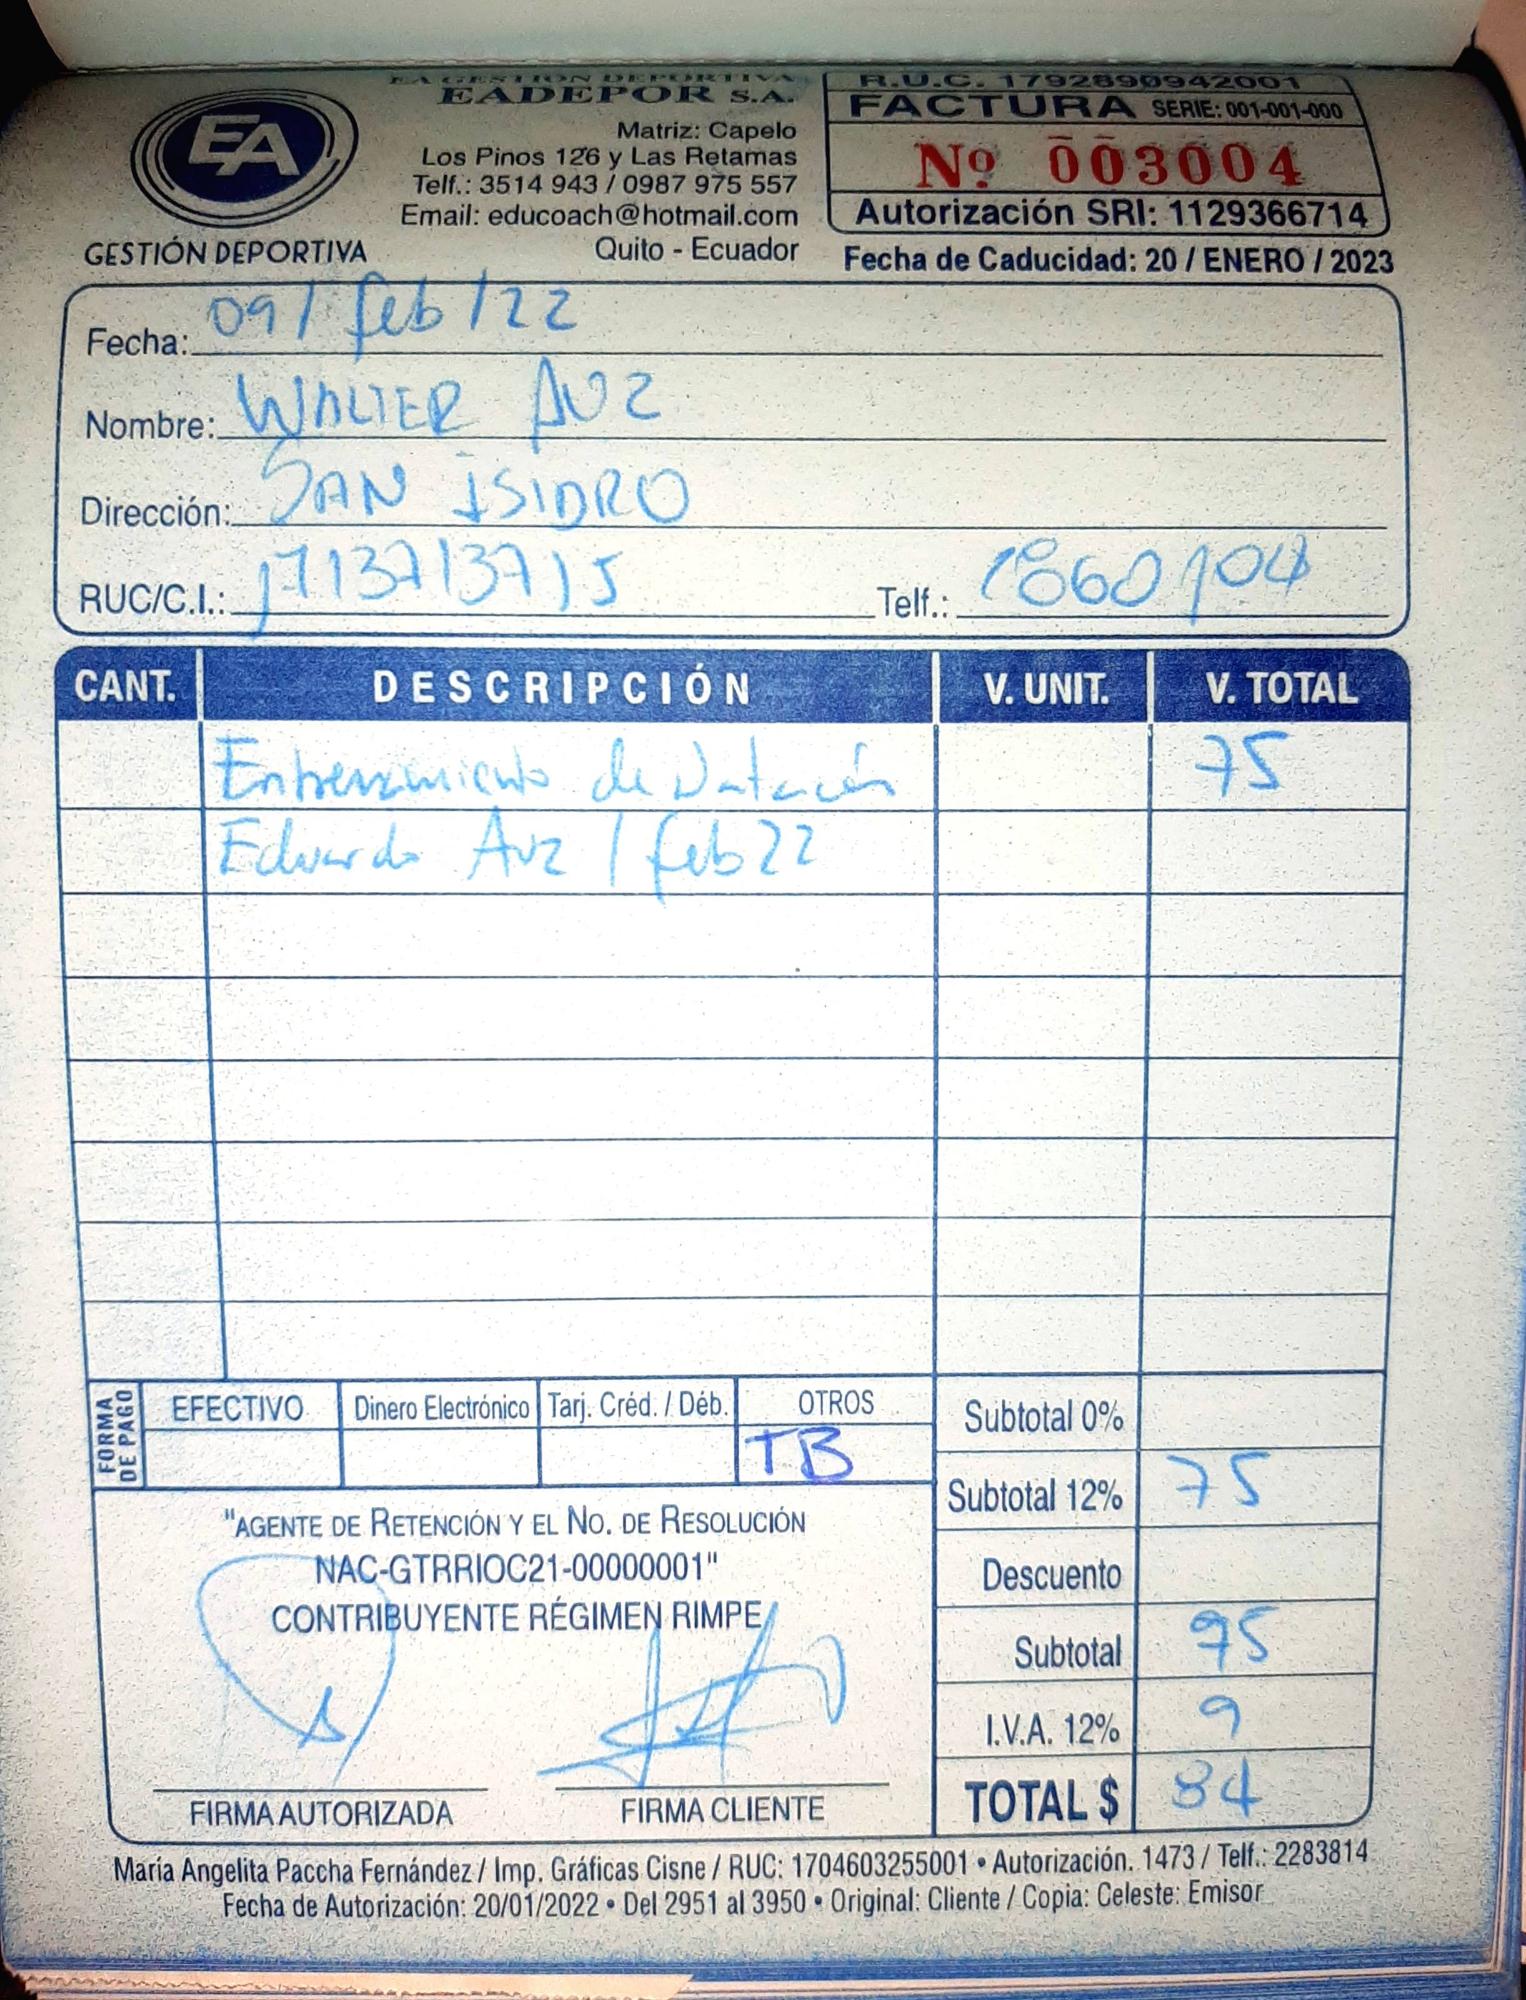 EA GESTION DEPORTIVA
EADEPOR S.A.
EA
GESTIÓN DEPORTIVA
Matriz: Capelo
Los Pinos 126 y Las Retamas
Telf.: 3514 943 / 0987 975 557
Email: educoach@hotmail.com
Quito - Ecuador
R.U.C. 1792890942001
FACTURA SERIE: 001-001-000
Nº 003004
Autorización SRI: 1129366714
Fecha de Caducidad: 20 / ENERO / 2023
Fecha: 09 / feb / 22
Nombre: WALTER AUZ
Dirección: SAN ISIDRO
RUC/C.I.: 1713713715 Telf.: 1860104
CANT. DESCRIPCIÓN V. UNIT. V. TOTAL
Entrenamiento de Natación 75
Eduardo Auz / feb 22
FORMA DE PAGO
EFECTIVO Dinero Electrónico Tarj. Créd. / Déb. OTROS
TB
Subtotal 0%
Subtotal 12% 75
Descuento
Subtotal 75
I.V.A. 12% 9
TOTAL $ 84
"AGENTE DE RETENCIÓN Y EL NO. DE RESOLUCIÓN
NAC-GTRRIOC21-00000001"
CONTRIBUYENTE RÉGIMEN RIMPE
FIRMA AUTORIZADA FIRMA CLIENTE
María Angelita Paccha Fernández / Imp. Gráficas Cisne / RUC: 1704603255001 • Autorización. 1473 / Telf.: 2283814
Fecha de Autorización: 20/01/2022 • Del 2951 al 3950 • Original: Cliente / Copia: Celeste: Emisor